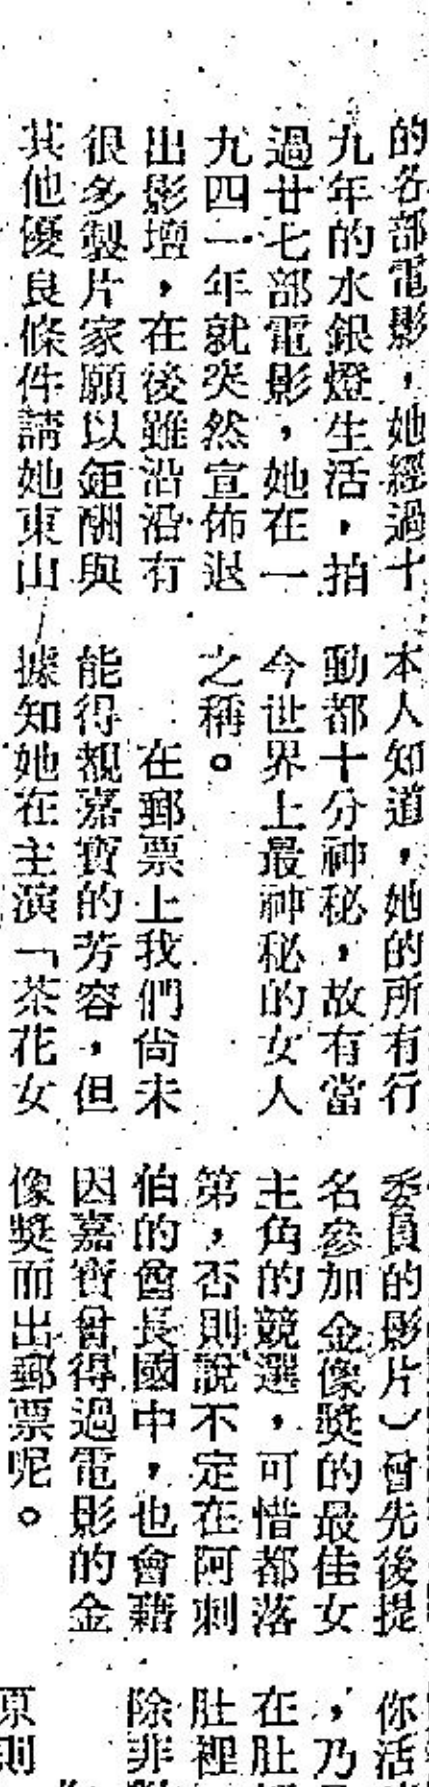 的各部電影，她經過十
九年的水銀燈生活，拍
過廿七部電影，她在一
九四一年就突然宣佈退
出影壇，在後雖沿沿有
很多製片家願以鉅酬與
其他優良條件請她東山
本人知道，她的所有行
動都十分神秘，故有當
今世界上最神秘的女人
之稱。
在郵票上我們尙未
能得覩嘉寶的芳容，但
據知她在主演「茶花女
委員的影片）曾先後提
名參加金像獎的最佳女
主角的競選，可惜都落
第，否則說不定在阿剌
伯的酋長國中，也會藉
因嘉寶曾得過電影的金
像獎而出郵票呢。
你活
，乃
在肚
肚裡
除非
原則